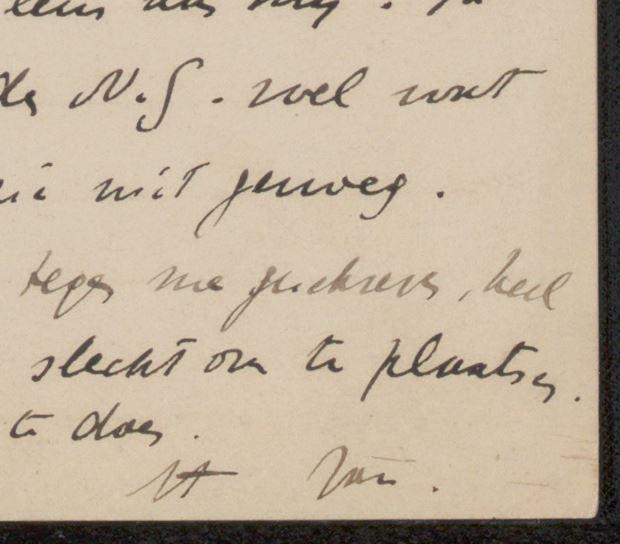 de N.G. wel wat
niet genoeg.
tegen me geschreven, heel
slecht om te plaatsen.
te doen.
Jan.